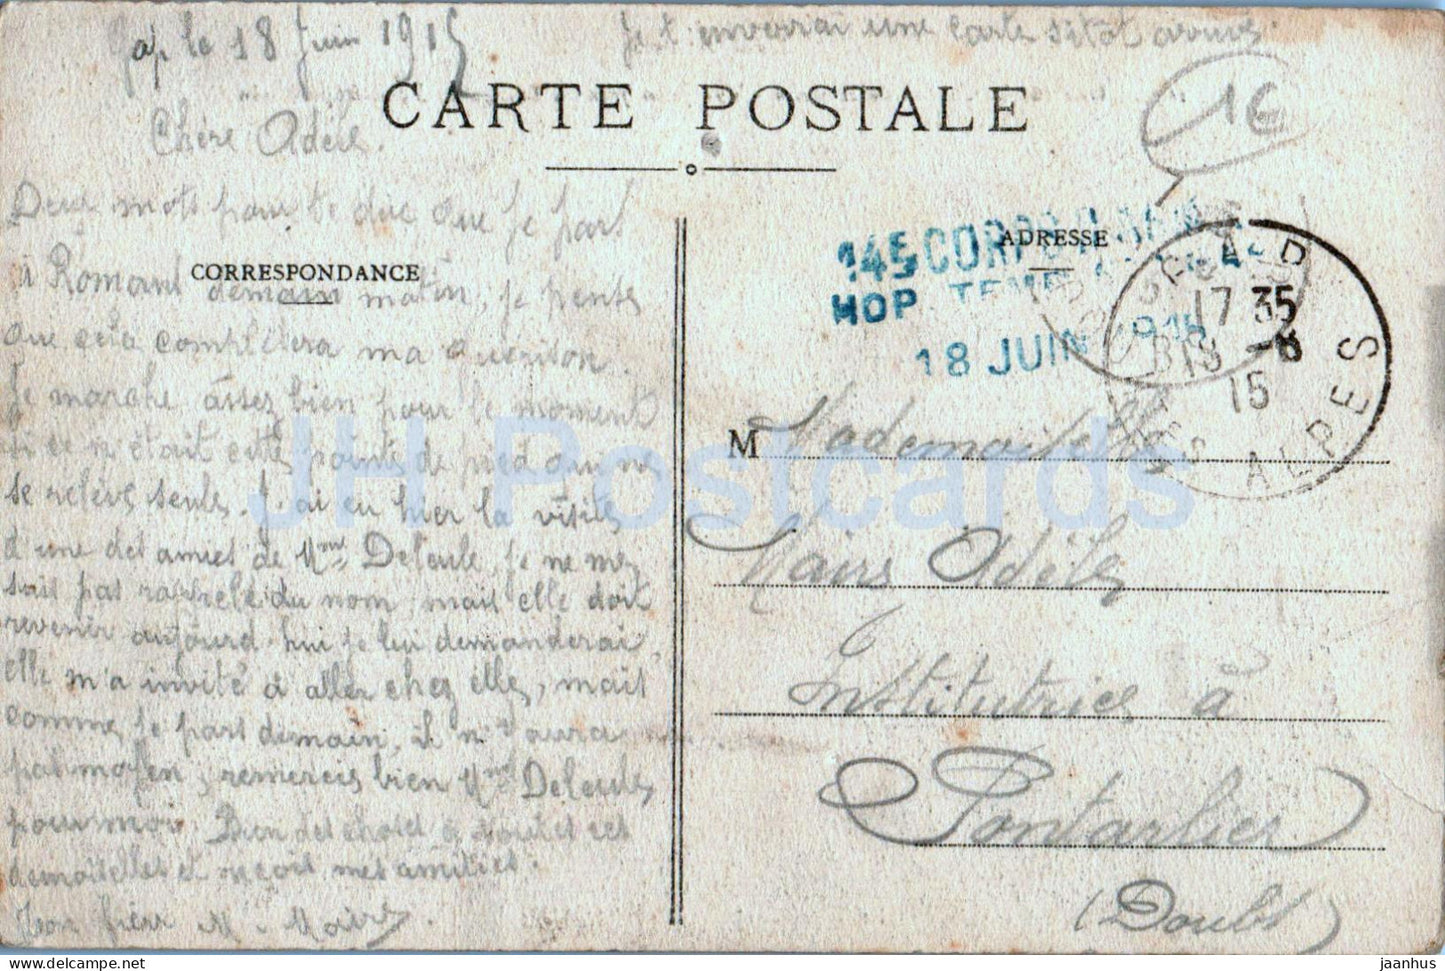 Gap le 18 Juin 1915
Je t'enverrai une carte sitôt arrivé.
CARTE POSTALE
1€
Chère Adèle.
Deux mots pour te dire que je part
CORRESPONDANCE
à Romans demain matin, je pense
que cela complètera ma guérison.
Je marche assez bien pour le moment
si ce n'était cette pointe de pied qui ne
se relève seule. J'ai eu hier la visite
d'une des amies de Mme Deleule, je ne me
suis pas rappelé du nom, mais elle doit
revenir aujourd'hui je lui demanderai,
elle m'a invité à aller chez elle, mais
comme je pars demain, il n'y aura
pas moyen, remercie bien Mme Deleule
pour moi. Bien des choses à toutes ces
demoiselles et reçois mes amitiés.
Ton frère M. Maire
ADRESSE
145 CORPS D'
HOP TEMP
18 JUIN 1915
GAP
17 35
18 -6
15
HTES ALPES
M Mademoiselle
Maire Adèle
Institutrice à
Pontarlier
(Doubs)
JH Postcards
www.delcampe.net
jaanhus